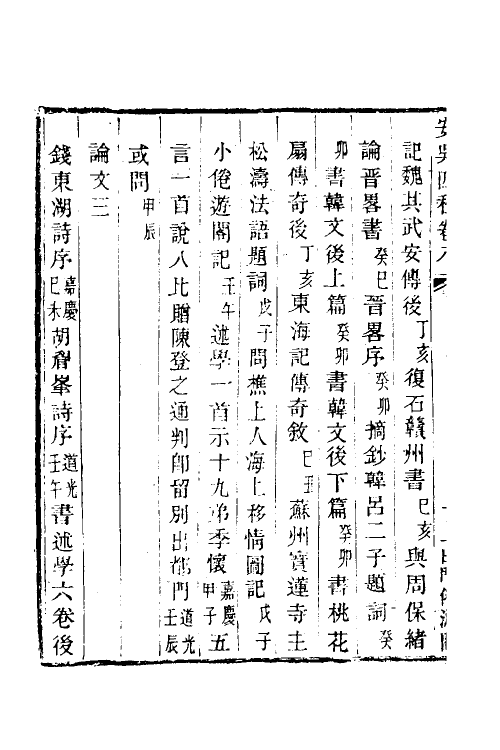 安吳四種卷八
記魏其武安傳後丁亥復石贛州書己亥與周保緒
論晉畧書癸巳晉畧序癸卯摘鈔韓呂二子題詞癸
卯書韓文後上篇癸卯書韓文後下篇癸卯書桃花
扇傳奇後丁亥東海記傳奇敘己丑蘇州寶蓮寺主
松濤法語題詞戊子問樵上人海上移情圖記戊子
小倦遊閣記壬午述學一首示十九弟季懷嘉慶甲子五
言一首說八比贈陳登之通判卽留別出都門道光壬辰
或問甲辰
論文三
錢東湖詩序嘉慶己未胡眘峯詩序道光壬午書述學六卷後